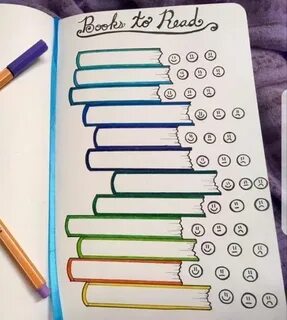 Books to Read